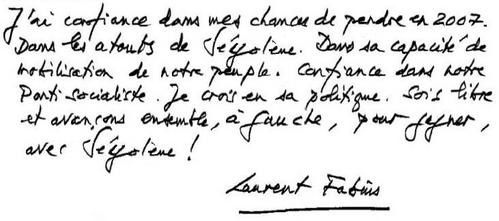 J'ai confiance dans mes chances de perdre en 2007.
Dans les atouts de Ségolène. Dans sa capacité de
mobilisation de notre peuple. Confiance dans notre
Parti socialiste. Je crois en sa politique. Sois libre
et avançons ensemble, à gauche, pour gagner,
avec Ségolène !
Laurent Fabius